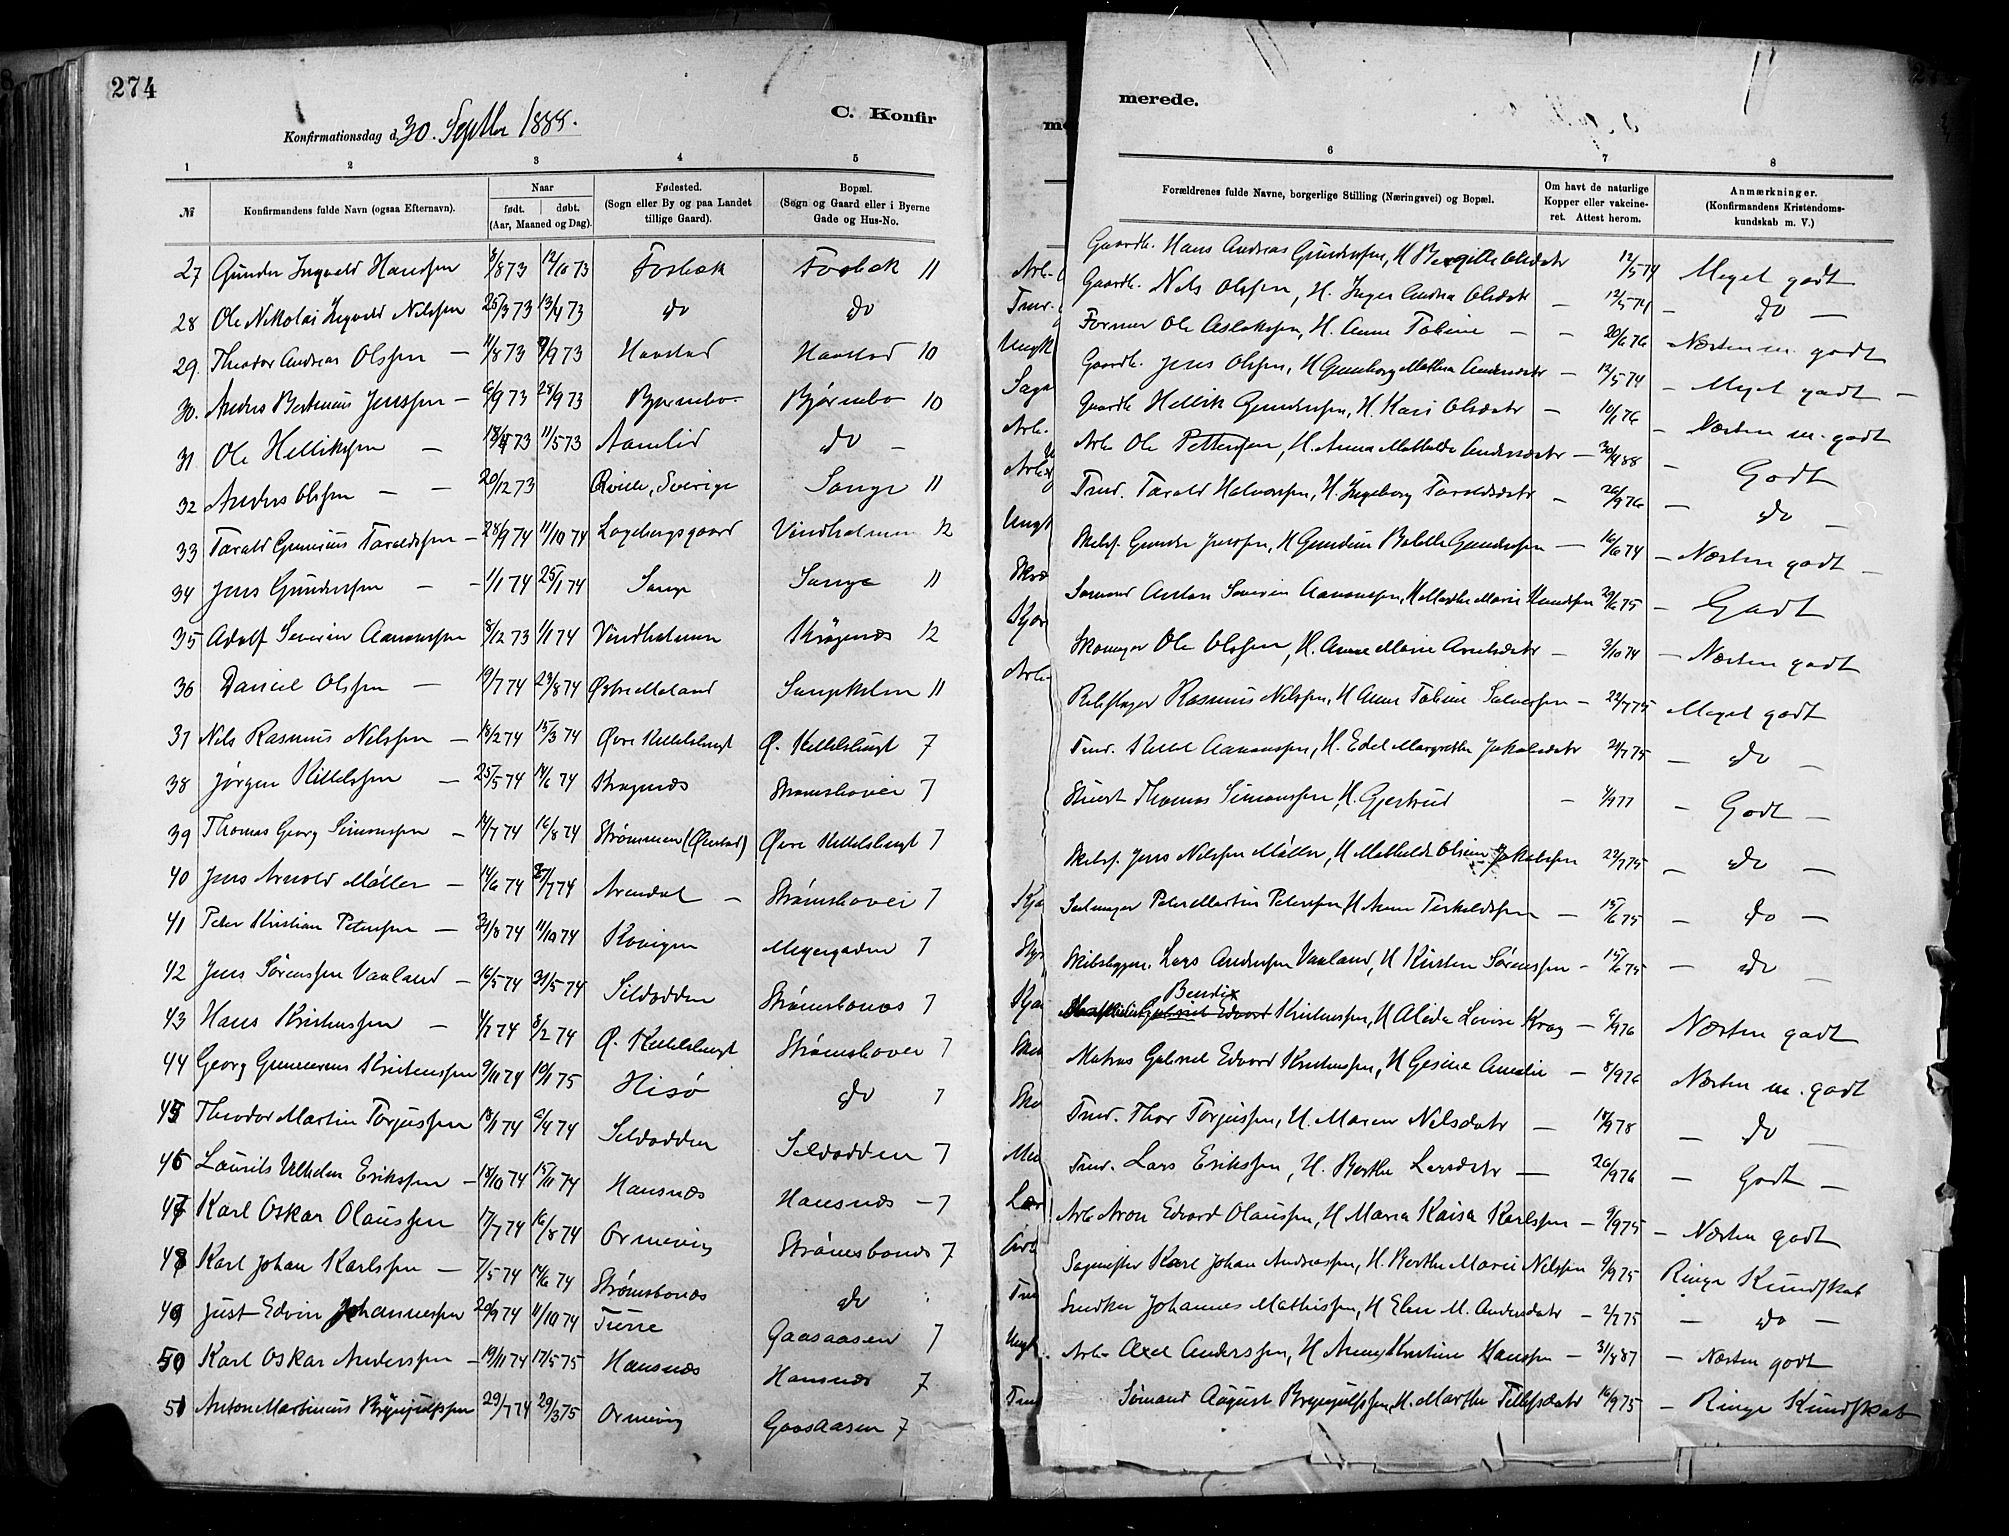 274
Konfirmationsdag d. 30. Septbr 1888.
C. Konfir
merede.
1 2 3 4 5 6 7 8
№
Konfirmandens fulde Navn (ogsaa Efternavn).
Naar
født. døbt.
(Aar, Maaned og Dag).
Fødested.
(Sogn eller By og paa Landet
tillige Gaard).
Bopæl.
(Sogn og Gaard eller i Byerne
Gade og Hus-No.
Forældrenes fulde Navne, borgerlige Stilling (Næringsvei) og Bopæl.
Om havt de naturlige
Kopper eller vakcine-
ret. Attest herom.
Anmærkninger.
(Konfirmandens Kristendoms-
kundskab m. V.)
27 Gunder Ingvald Hanssen /8 73 12/10 73 Fosbæk Fosbæk 11 Gaardb. Hans Andreas Gunderssen, H. Bergitte Olsdatr 12/5 74 Meget godt
28 Ole Nikolai Ingvald Nilssen 25/3 73 13/4 73 do do Gaardb. Nils Olssen, H. Inger Andrea Olsdatr — 12/5 74 — do —
29. Theodor Andreas Olssen — 11/8 73 /9 73 Havstad Havstad 10 Former Ole Aslakssen, H. Anne Tobine — — 20/6 76 Næsten m. godt
30. Anders Bertinius Jenssen — 6/9 73 28/9 73 Bjørnebo Bjørnebo 10 Gaardb. Jens Olssen, H Gunborg Mathea Andersdatr — 12/5 74 — Meget godt —
31 Ole Hellikssen — /4 73 11/5 73 Aamlid do — Gaardb Hellik Gunderssen, H. Kari Olsdatr — 10/ 76 — Næsten m. godt
32 Anders Olssen — — 20/12 73 Qville, Sverige Songe 11 Arb. Ole Petterssen, H. Anna Mathilde Andersdatr — 30/4 88 — Godt
33 Tarald Gunerius Taraldssen — 28/9 74 11/10 74 Lagebergsgaard Vindholmen 12 Tmd. Tarald Halvorssen, H. Ingeborg Taraldsdatr — 26/9 76 — do —
34 Jens Gunderssen — — 1/1 74 25/1 74 Songe Songe 11 Skibsf. Gunder Jenssen, H Gundine Bolette Gunderssen — 16/6 74 — Næsten godt —
35 Adolf Severin Aanonssen 8/12 73 1/1 74 Vindholmen Krøgenæs 12 Sømand Anton Severin Aanonssen, H Marthe Marie Knudssen 23/6 75 — Godt
36 Daniel Olssen — 19/7 74 23/8 74 Østre Moland Songekilen 11 Skomager Ole Olssen, H. Anne Marie Arntsdatr — 3/10 74 — Næsten godt
37 Nils Rasmus Nilssen — 18/2 74 15/3 74 Øvre Kittelsbugt Ø. Kittelsbugt 7 Rebslager Rasmus Nilssen, H Anne Tobine Salvessen — 22/7 75 Meget godt
38 Jørgen Kittelssen — 25/5 74 14/6 74 Kragenæs Strømshovei 7 Tmd. Kittel Aanonssen, H. Edel Margrethe Jakobsdatr 21/7 75 — do —
39 Thomas Georg Simonssen — 14/7 74 16/8 74 Strømmen (Øiestad) Øvre Kittelsbugt 7 Stuert Thomas Simonssen, H. Gjertrud — 4/9 77 — Godt —
40 Jens Arnold Møller — 14/6 74 /7 74 Arendal — Strømshovei 7 Skibsf. Jens Nilssen Møller, H Mathilde Olsine Jakobssen 22/7 75 — do —
41 Peter Kristian Petersen — 31/8 74 11/10 74 Kovigen Meyergaden 7 Seilmager Peter Martin Peterssen, H Anne Terkeldssen — 15/6 75 — do —
42 Jens Sørenssen Vaaland — 16/5 74 31/5 74 Sildodden Strømsbonæs 7 Skibsbygm. Lars Anderssen Vaaland, H Kirsten Sørenssen — 15/6 75 — do —
43 Hans Kristenssen — 4/1 74 8/2 74 Ø. Kittelsbugt Strømshovei 7 Bendix Kristenssen, H Aleda Lovise Krog — /9 76 Næsten godt
44 Georg Gunnerius Kristenssen 9/11 74 10/1 75 Hisø do 7 Matros Gabriel Edvard Kristenssen, H Gesine Amalie — 8/9 76 Næsten m. godt
45 Theodor Martin Torjussen 18/1 74 6/4 74 Sildodden Sildodden 7 Tmd. Thor Torjussen, H. Maren Nilsdatr — /9 78 — do —
46 Laurits Vilhelm Erikssen — 18/10 74 15/11 74 Hansnæs Hansnæs — 7 Tmd. Lars Erikssen, H. Berthe Larsdatr — 26/9 76 — Godt —
47 Karl Oskar Olaussen 17/7 74 16/8 74 Ormevig Strømsbonæs 7 Arb Aron Edvard Olaussen, H Maria Kaisa Karlssen — 9/9 75 — Næsten godt
48 Karl Johan Karlssen — 7/5 74 14/6 74 Strømsbonæs do Sagmester Karl Johan Andreassen, H. Berthe Marie Nilssen 9/9 75 Ringe Kundskab
49 Just Edvin Johannessen 20/9 74 11/10 74 Gaasaasen 7 Snedker Johannes Mathissen, H Elen M. Andersdatr — 2/7 75 — do —
50 Karl Oskar Anderssen — 19/11 74 17/5 75 Hansnæs Hansnæs 7 Arb Axel Anderssen, H Anna Kristine Hanssen — 31/8 87 — Næsten godt
51 Anton Martinius Brynjulfssen 29/7 74 29/3 75 Ormevig Gaasaasen 7 Sømand August Brynjulfssen, H. Marthe Tellefsdatr 16/9 75 — Ringe Kundskab